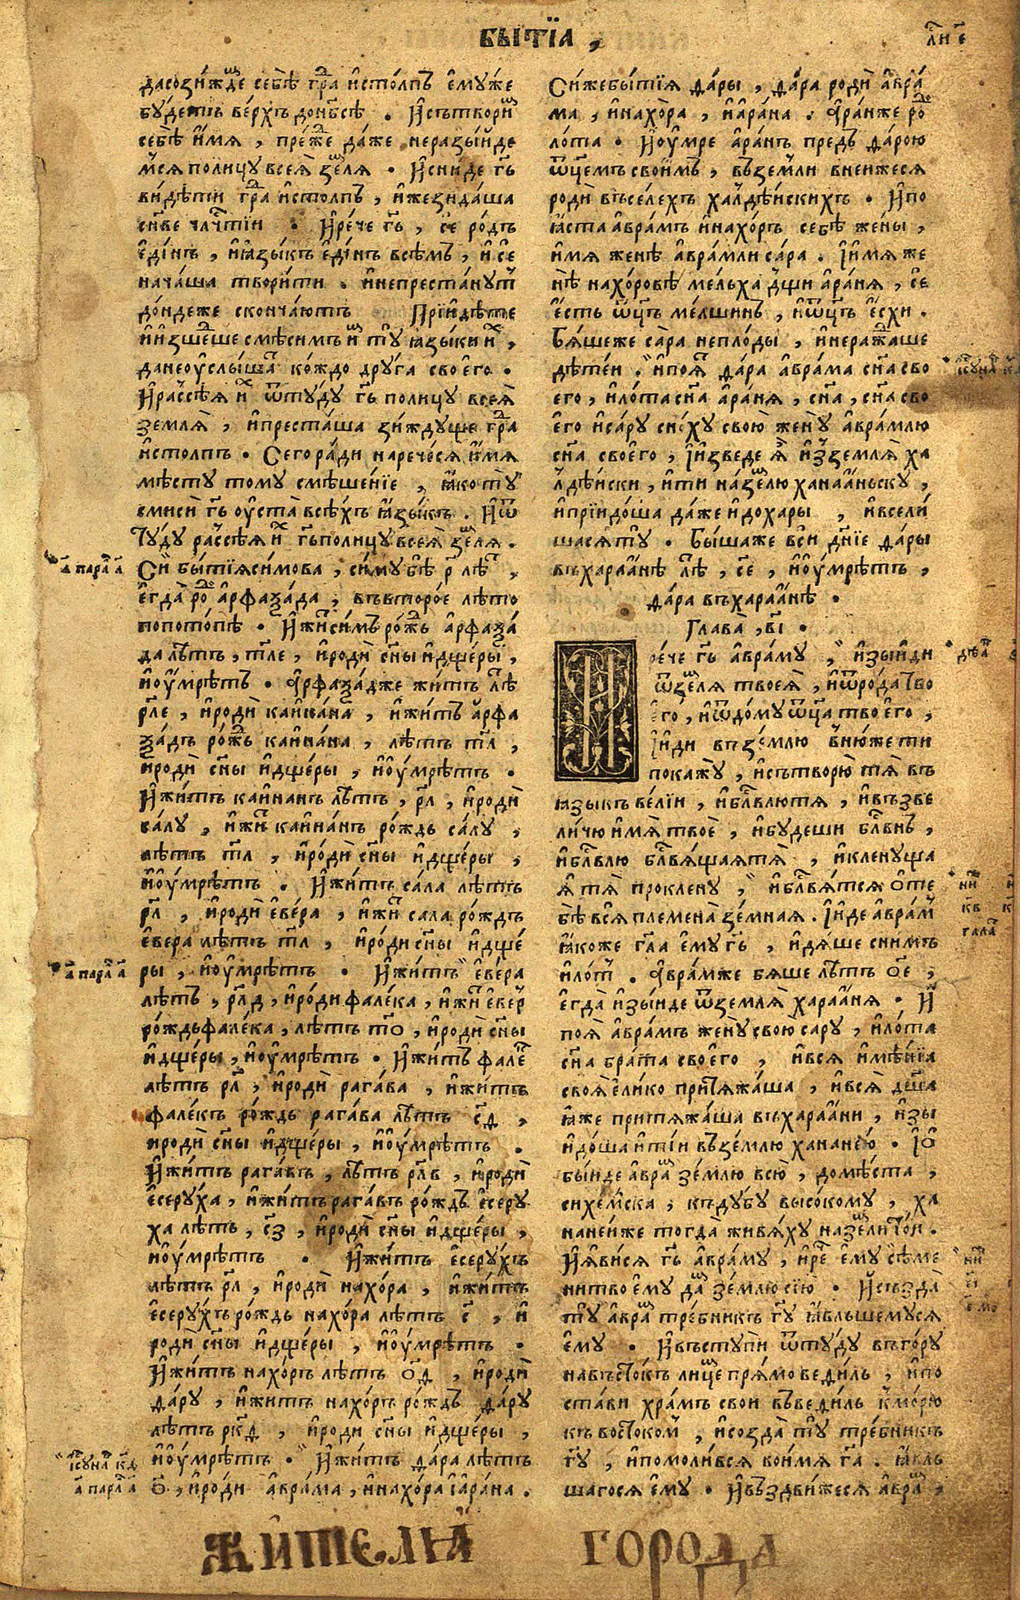 БЫТЇА ,
да созиждѣ себѣ гра и столпъ емуже
будетъ верхъ до нбсѣ . И сътвори
себѣ имя , преже даже неразыйде
мся полицу всея зеля . И сниде гь
видѣти гра и столпъ , ижезидаша
снве члчтїи . И рече гь , се родъ
единъ , и языкъ единъ всѣмъ , и се
начаша творити . и непрестанут
дондеже скончаютъ Прїидѣте
и изшеше смѣсимъ и ту языки и ,
да не оуслыша кождо друга своего .
И рассѣя и ѿтуду гь полицу всея
земля , и престаша зиждуще гра
и столпъ . Сего ради наречеся имя
мѣсту тому смѣшенїе , яко ту
смиси гь оуста всѣхъ языкъ . И ѿ
туду рассѣя и гь полицу всея зеля .
Си бытїя симова , симу бѣ р лѣ ,
егда ро арфаѯада , въвторое лѣто
по потопѣ . И жи симъ рожь арфаѯа
да лѣтъ , тле , и роди сны и дщеры ,
и оумрѣтъ . Арфаѯадже житъ лѣ
рле , и роди каинана , и житъ арфа
ѯадъ рожь каинана , лѣтъ тл ,
и роди сны и дщеры , и оумрѣтъ .
И житъ каинанъ лѣтъ , рл , и роди
салу , и жи каинанъ рождь салу ,
лѣтъ тл , и роди сны и дщеры ,
и оумрѣтъ . И житъ сала лѣтъ
рл , и роди евера , и жи сала рождь
евера лѣтъ тл , и роди сны и дще
ры , и оумрѣтъ . И житъ евера
лѣтъ , рлд , и роди фалека , и жи евер
рождь фалека , лѣтъ то , и роди сны
и дщеры , и оумрѣтъ . И житъ фале
лѣтъ рл , и роди рагава , и житъ
фалекъ рождь рагава лѣтъ сд ,
и роди сны и дщеры , и оумрѣтъ .
И житъ рагавъ , лѣтъ рлв , и роди
есеруха , и житъ рагавъ рождь есеру
ха лѣтъ , сз , и роди сны и дщеры ,
и оумрѣтъ . И житъ есерухъ
лѣтъ рл , и роди нахора , и житъ
есерухъ рождь нахора лѣтъ с , и
роди сны и дщеры , и оумрѣтъ .
И житъ нахоръ лѣтъ од , и роди
дару , и житъ нахоръ рождь дару
лѣтъ ркд , и роди сны и дщеры ,
и оумрѣтъ . И житъ дара лѣтъ
о , и роди аврама , и нахора і арана .
а парал а
а парал а
ісунав кд
а парал а
Си же бытїя дары , дара роди авра
ма , и нахора , и арана . Аранже ро
лота . И оумре аранъ предъ дарою
ѿцемъ своимъ , въземли внеижеся
роди въселехъ халдѣискихъ . И по
яста аврамъ и нахоръ себѣ жены ,
имя женѣ аврамли сара . І имя же
нѣ нахоровѣ мельха дщи араня , се
есть ѿцъ мелшинъ , и ѿцъ есхи .
Бяшеже сара неплоды , и неражаше
дѣтеи . и поя дара аврама сна сво
его , и лота сна араня , сна , сна сво
его и сару сноху свою жену аврамлю
сна своего , І изведе я изземля ха
лдѣиски , ити на зелю ханааньску ,
и прїидоша даже и до хары , и всели
шася ту . Бышаже вси днїе дары
въхараанѣ лѣ , се , и оумрѣтъ ,
дара въхараанѣ .
Глава , ві .
И рече гь авраму , изыиди
ѿзеля твоея , и ѿрода тво
его , и ѿдому ѿца твоего ,
І иди въземлю внюже ти
покажу , и сътворю тя въ
языкъ велїи , и блвлю тя , и възве
личю имя твое , и будеши блвнъ ,
и блвлю блвящая тя , и кленуща
я тя проклену , и блвятся о те
бѣ вся племена земная . І иде аврам
якоже гла ему гь , и дяше снимъ
и лот . Аврамже бяше лѣтъ ое ,
егда изыиде ѿземля хараня . И
поя аврамъ жену свою сару , и лота
сна брата своего , и вся имѣнїа
своя елико притяжаша , и вся дша
яже притяжаша въхараани , изы
идоша ити въземлю хананею . І о
быиде авра землю всю , до мѣста ,
сихемска , къдубу высокому , ха
нанеиже тогда живяху на зели тои .
И явися гь авраму , и ре ему сѣме
ни твоему да землю сїю . И създа
ту авра требникъ гу явльшемуся
ему . И въступи ѿтуду въгору
навъстокъ лице прямо ведиль , и по
стави храмъ свои въведиль кморю
къ востоком , и созда ту требникъ
гу , и помолився воимя га . явль
шагося ему . И въздвижеся авра ,
ЖИТЕЛІЯ ГОРОДА